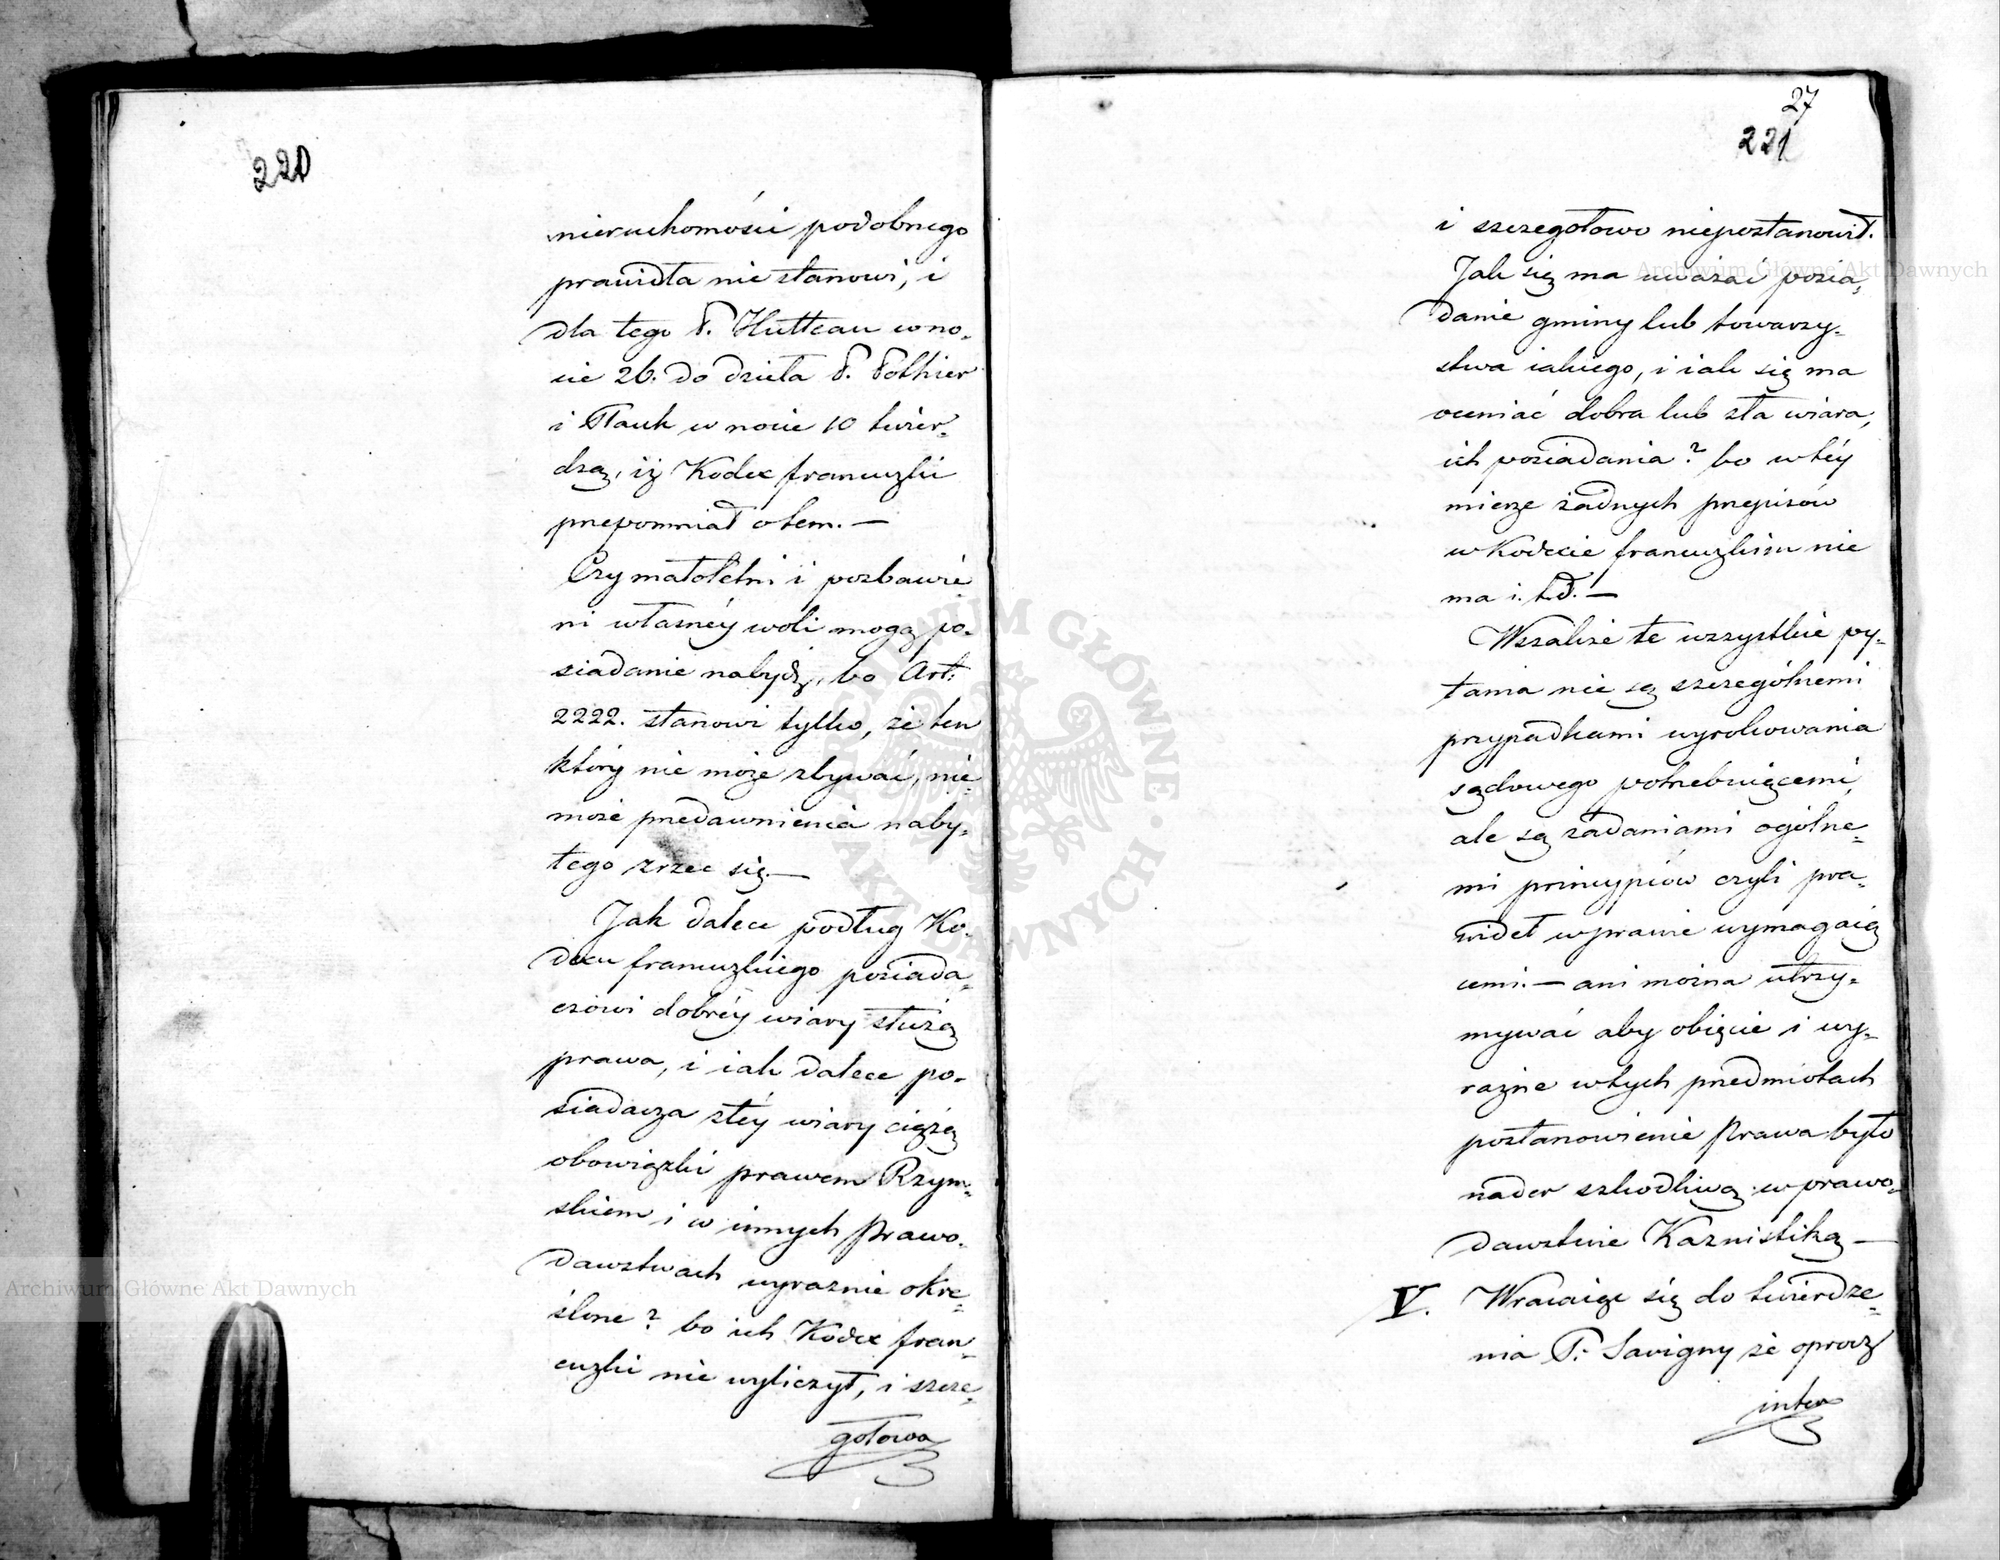 220
nieruchomości podobnego
prawidła nie stanowi, i
dla tego P. Hutteau w no-
cie 26. do dzieła P. Pothier
i Plauk w nocie 10 twier-
dzą, iż Kodex francuzki
przepomniał o tem. —
Czy małoletni i pozbawie-
ni własnéy woli mogą po-
siadanie nabydź, bo Art:
2222. stanowi tylko, że ten
który nie może zbywać, nie-
może przedawnienia naby-
tego zrzec się. —
Jak dalece podług Ko-
dexu francuzkiego posiada-
czowi dobréy wiary służą
prawa, i iak dalece po-
siadacza złéy wiary ciężą
obowiązki prawem Rzym-
skiem i w innych Prawo-
dawstwach wyraznie okre-
ślone? bo ich Kodex fran-
cuzki nie wyliczył, i szcze-
gołowo
27
221
i szczegołowo niepostanowił.
Jak się ma uważać posia-
danie gminy lub towarzy-
stwa iakiego, i iak się ma
oceniać dobra lub zła wiara,
ich posiadania? bo w téy
mierze żadnych przepisów
w Kodexie francuzkim nie
ma i. t. d. —
Wszakże te wszystkie py-
tania nie są szczególnemi
przypadkami wyrokowania
sądowego potrzebuiącemi,
ale są zadaniami ogólne-
mi principiów czyli pra-
wideł w prawie wymagaią
cemi. — ani można utrzy-
mywać aby obięcie i wy-
raźne w tych przedmiotach
postanowienie Prawa było
nader szkodliwą w prawo-
dawstwie Kazuistiką —
V. Wracaiąc się do twierdze-
nia P. Savigny że oprocz
inter
Archiwum Główne Akt Dawnych
Archiwum Główne Akt Dawnych
ARCHIWUM GŁÓWNE AKT DAWNYCH